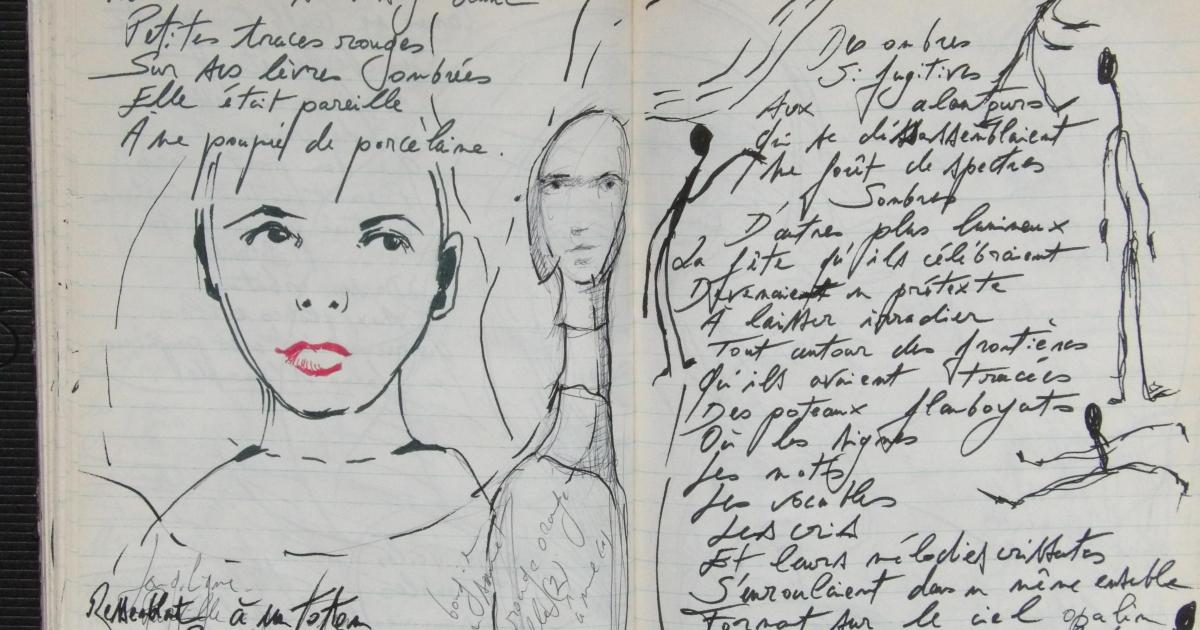 Petites traces rouges
Sur ses lèvres ombrées
Elle était pareille
À une poupée de porcelaine.
Longiligne
Ressemblant à un totem
Des ombres
Si fugitives
Aux alentours
Qui se désassemblaient
Une forêt de spectres
Sombres
D'autres plus lumineux
La fête qu'ils célébraient
Devenaient un prétexte
À laisser irradier
Tout autour des frontières
Qu'ils avaient tracées
Des poteaux flamboyants
Où les signes
Les mots
Les vocables
Les cris
Et leurs mélodies crissantes
S'enroulaient dans un même ensemble
Formant sur le ciel opalin